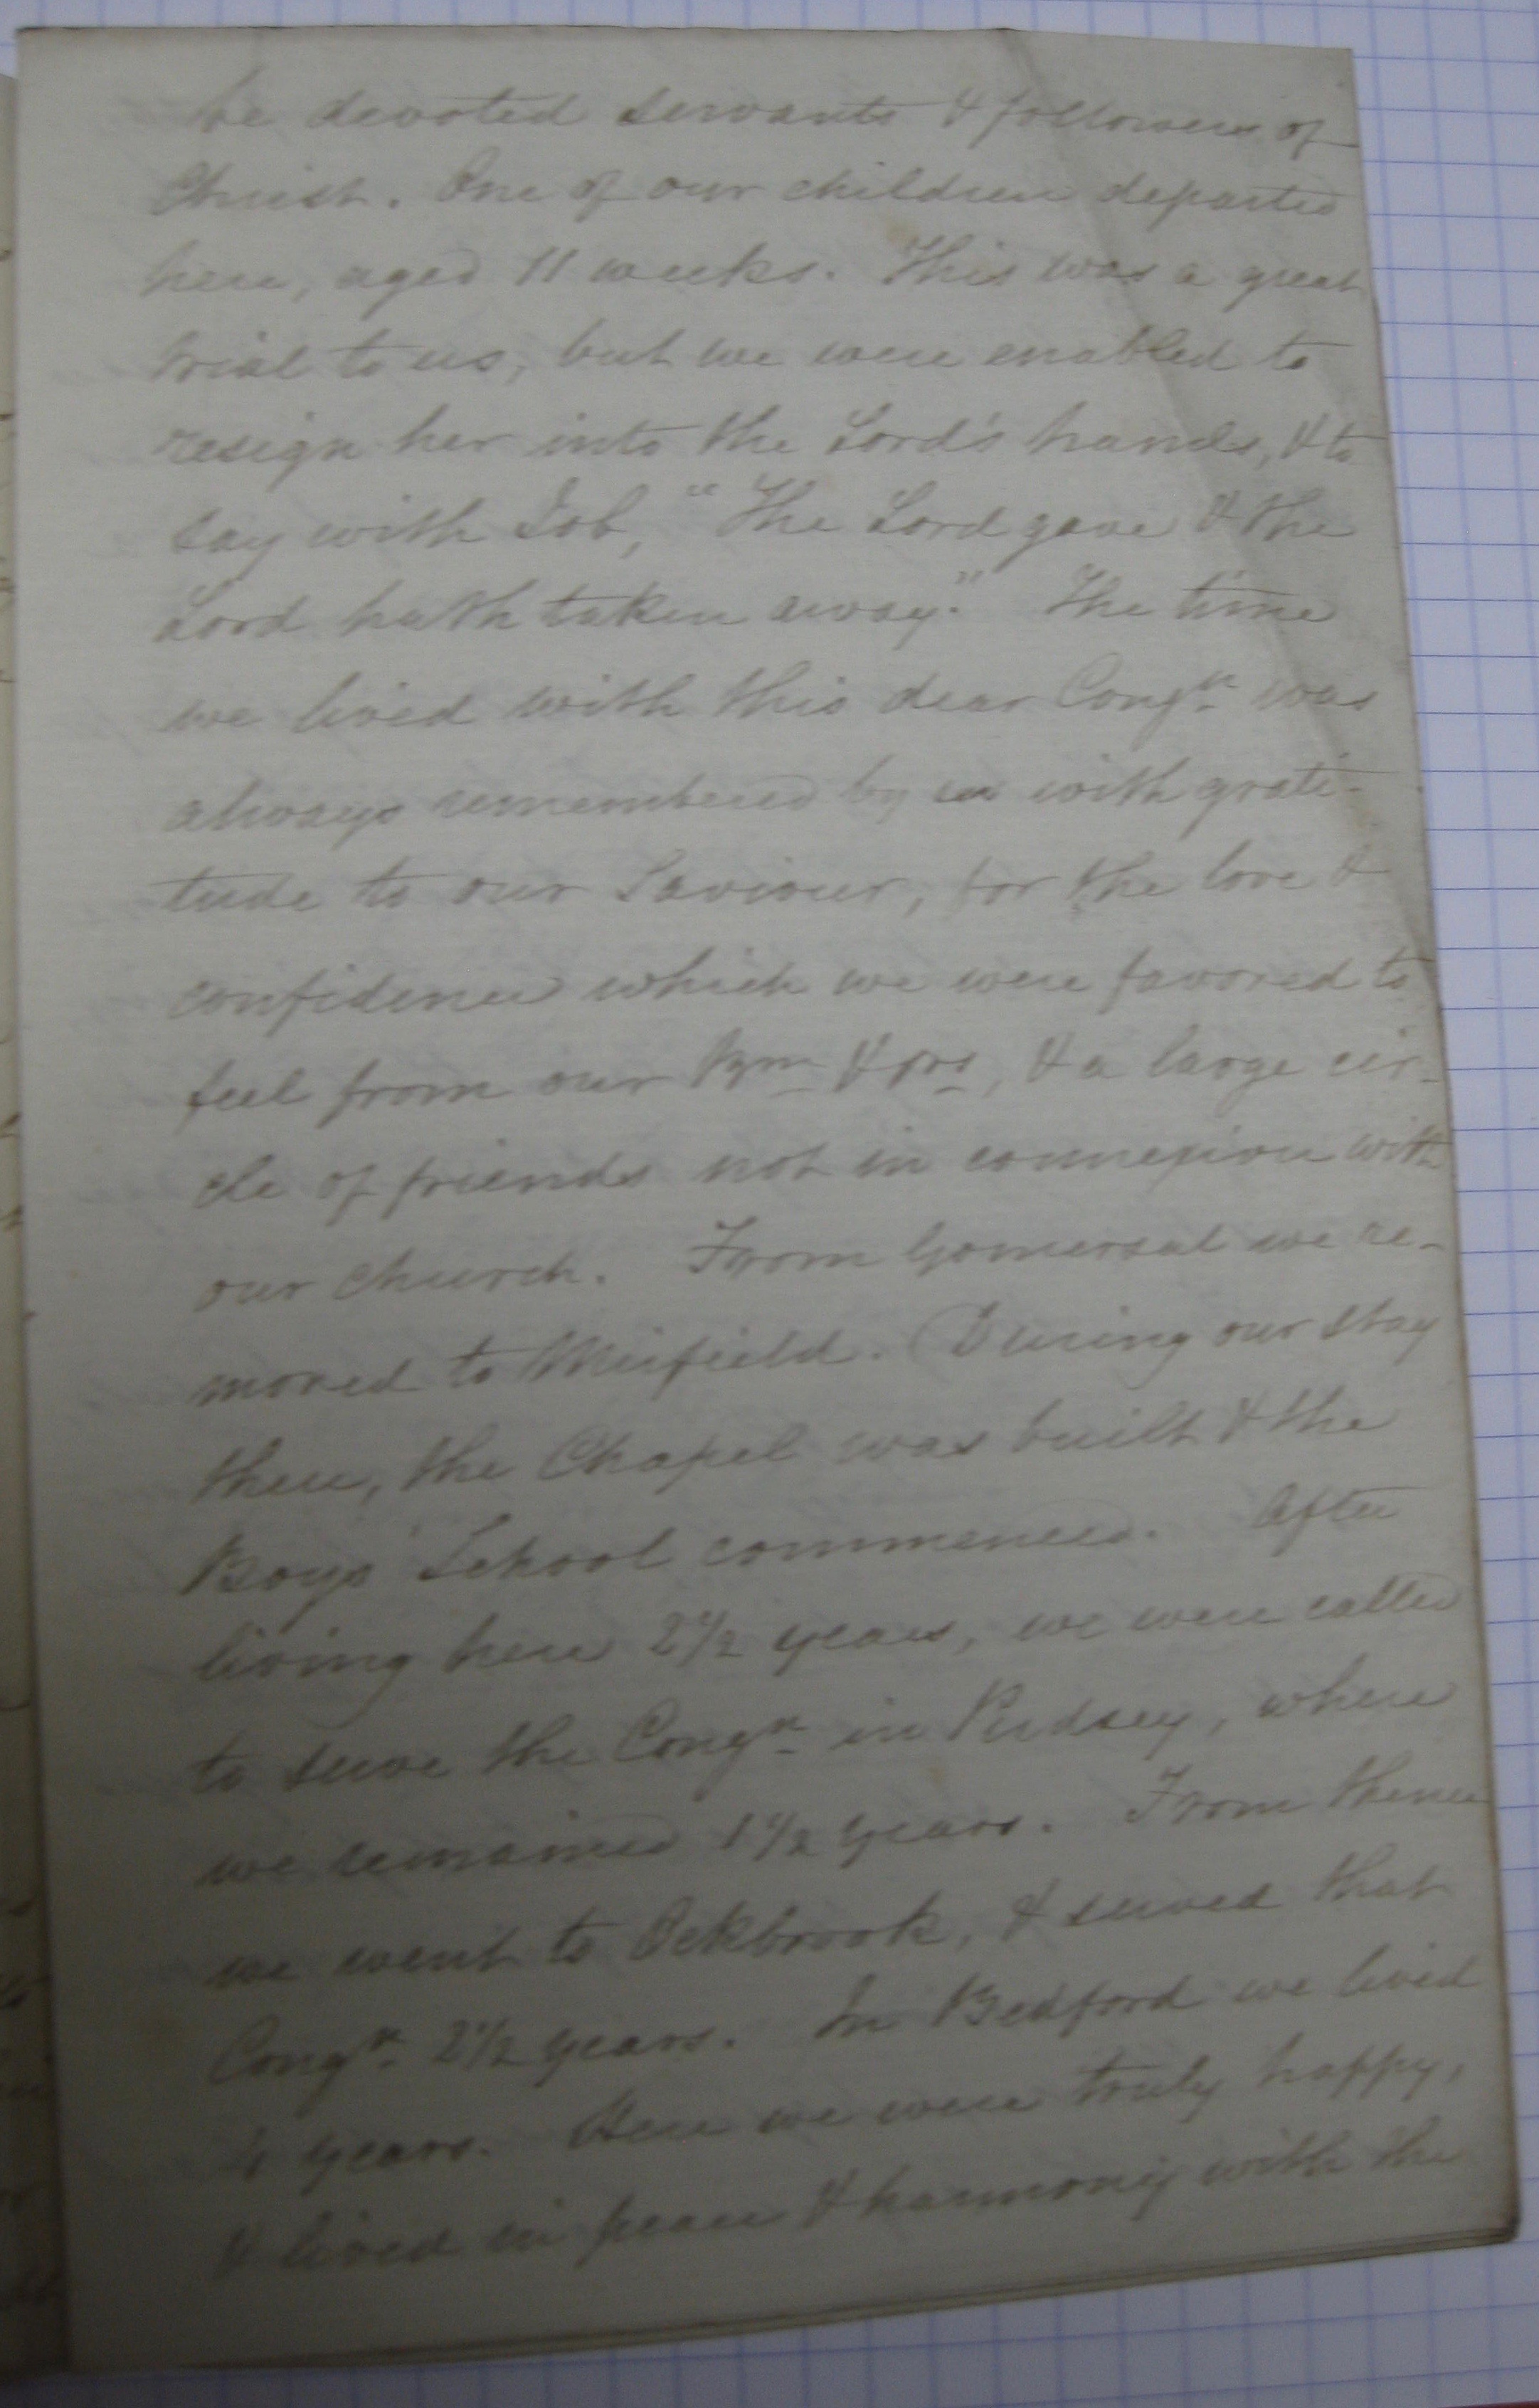 be devoted servants & followers of
Christ. One of our children departed
here, aged 11 weeks. This was a great
trial to us, but we were enabled to
resign her into the Lord's hands, & to
say with Job, "The Lord gave & the
Lord hath taken away." The time
we lived with this dear Congn. was
always remembered by us with grati-
tude to our Saviour, for the love &
confidence which we were favored to
feel from our Brn & Srs, & a large cir-
cle of friends not in connexion with
our church. From Gomersal we re-
moved to Mirfield. (During our stay
there, the Chapel was built & the
Boys' School commenced. After
living here 2 1/2 years, we were called
to serve the Congn. in Pudsey, where
we remained 1 1/2 years. From thence
we went to Ockbrook, & served that
Congn. 2 1/2 years. In Bedford we lived
4 years. Here we were truly happy,
& lived in peace & harmony with the